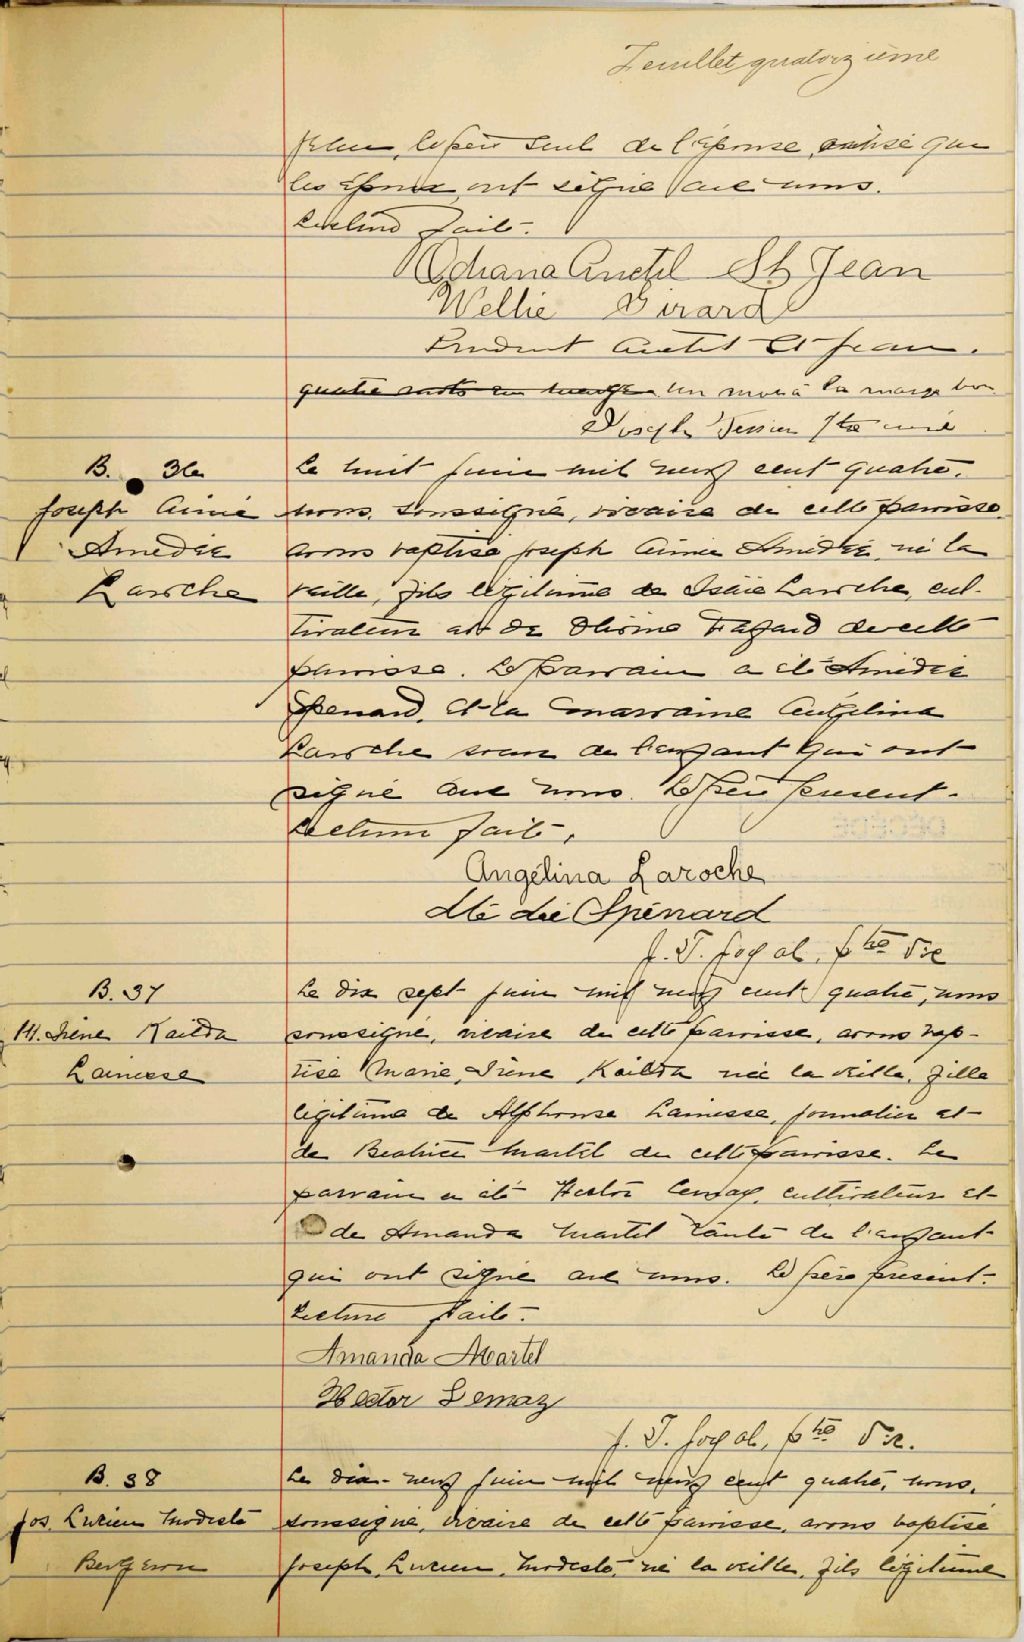 Feuillet quatorzième
le père seul de l'épouse, ainsi que
les époux, ont signé avec nous.
Lecture faite.
Odiana Anctil St Jean
Wellie Girard
Prudent Anctil St Jean.
quatre mots en marge. Un mot à la marge bon.
Joseph Tessier Ptre curé
B. 36
Joseph Aimé
Amédée
Laroche
Le huit juin mil neuf cent quatre,
nous, soussigné, vicaire de cette paroisse
avons baptisé Joseph Aimé Amédée, né la
veille, fils légitime de Isaïe Laroche, cul-
tivateur et de Fagard de cette
paroisse. Le parrain a été Amédée
Spenard, et la marraine Angélina
Laroche soeur de l'enfant qui ont
signé avec nous. Le père présent.
Lecture faite,
Angélina Laroche
Spénard
J. T. Joyal, ptre Vic
B. 37
M. Irène Kaïlda
Lainesse
Le dix sept juin mil neuf cent quatre, nous
soussigné, vicaire de cette paroisse, avons bap-
tisé Marie, Irène, Kaïlda née la veille, fille
légitime de Alphonse Lainesse, journalier et
de Beatrice Martel de cette paroisse. Le
parrain a été Hector Lemay, cultivateur et
de Amanda Martel tante de l'enfant
qui ont signé avec nous. Le père présent.
Lecture faite.
Amanda Martel
Hector Lemay
J. T. Joyal, ptre Vic.
B. 38
Jos. Lucien Modeste
Bergeron
Le dix-neuf juin mil neuf cent quatre, nous,
soussigné, vicaire de cette paroisse, avons baptisé
Joseph, Lucien, Modeste, né la veille, fils légitime